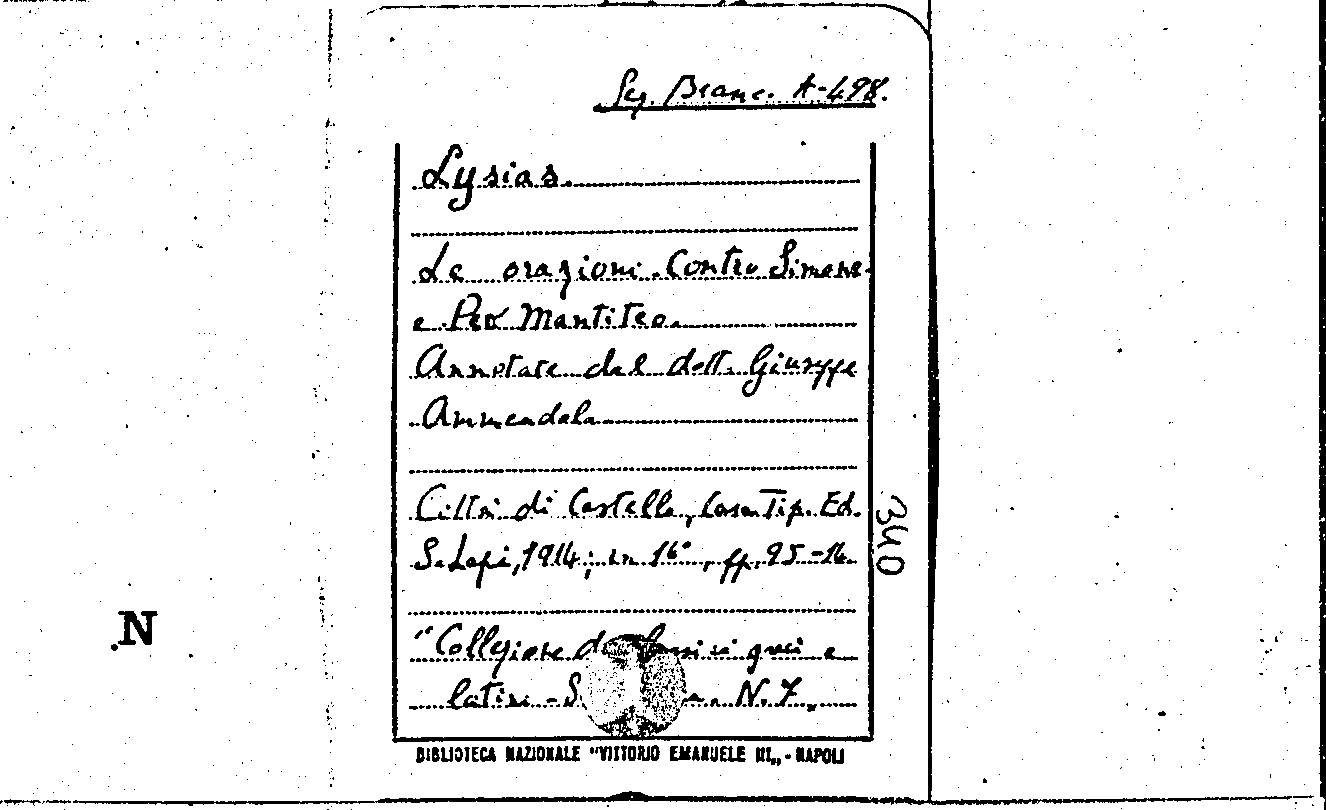 Seg. Branc. A-498.
Lysias.
Le orazioni Contro Simone
e Per Mantiteo.
Annotate dal dott. Giuseppe
Ammendola
Città di Castello, Casa Tip. Ed.
S. Lapi, 1914; in 16°, pp. 95-16.
"Collezione di classici greci e
latini - S. N. 7„
340
N
BIBLIOTECA NAZIONALE "VITTORIO EMANUELE III„ - NAPOLI